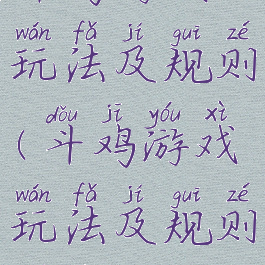 wán fǎ jí guī zé
玩法及规则
dǒu jī yóu xì
(斗鸡游戏
wán fǎ jí guī zé
玩法及规则